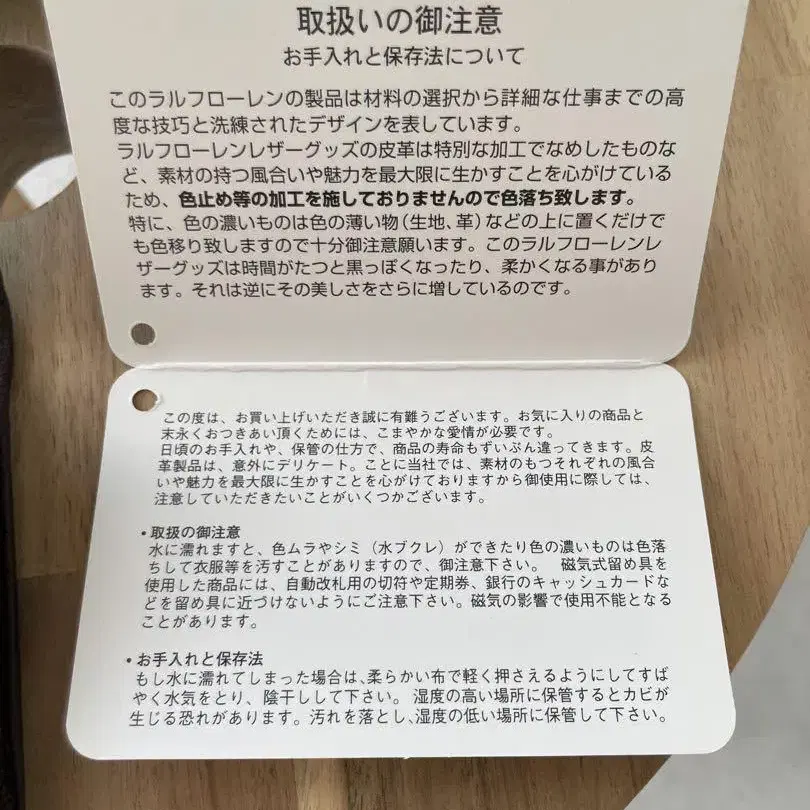 取扱いの御注意
お手入れと保存法について
このラルフローレンの製品は材料の選択から詳細な仕事までの高
度な技巧と洗練されたデザインを表しています。
ラルフローレンレザーグッズの皮革は特別な加工でなめしたものな
ど、素材の持つ風合いや魅力を最大限に生かすことを心がけている
ため、色止め等の加工を施しておりませんので色落ち致します。
特に、色の濃いものは色の薄い物(生地、革)などの上に置くだけで
も色移り致しますので十分御注意願います。このラルフローレンレ
ザーグッズは時間がたつと黒っぽくなったり、柔かくなる事があり
ます。それは逆にその美しさをさらに増しているのです。
この度は、お買い上げいただき誠に有難うございます。お気に入りの商品と
末永くおつきあい頂くためには、こまやかな愛情が必要です。
日頃のお手入れや、保管の仕方で、商品の寿命もずいぶん違ってきます。皮
革製品は、意外にデリケート。ことに当社では、素材のもつそれぞれの風合
いや魅力を最大限に生かすことを心がけておりますから御使用に際しては、
注意していただきたいことがいくつかございます。
・取扱の御注意
水に濡れますと、色ムラやシミ(水ブクレ)ができたり色の濃いものは色落
ちして衣服等を汚すことがありますので、御注意下さい。 磁気式留め具を
使用した商品には、自動改札用の切符や定期券、銀行のキャッシュカードな
どを留め具に近づけないようにご注意下さい。磁気の影響で使用不能となる
ことがあります。
・お手入れと保存法
もし水に濡れてしまった場合は、柔らかい布で軽く押さえるようにしてすば
やく水気をとり、陰干しして下さい。 湿度の高い場所に保管するとカビが
生じる恐れがあります。汚れを落とし、湿度の低い場所に保管して下さい。